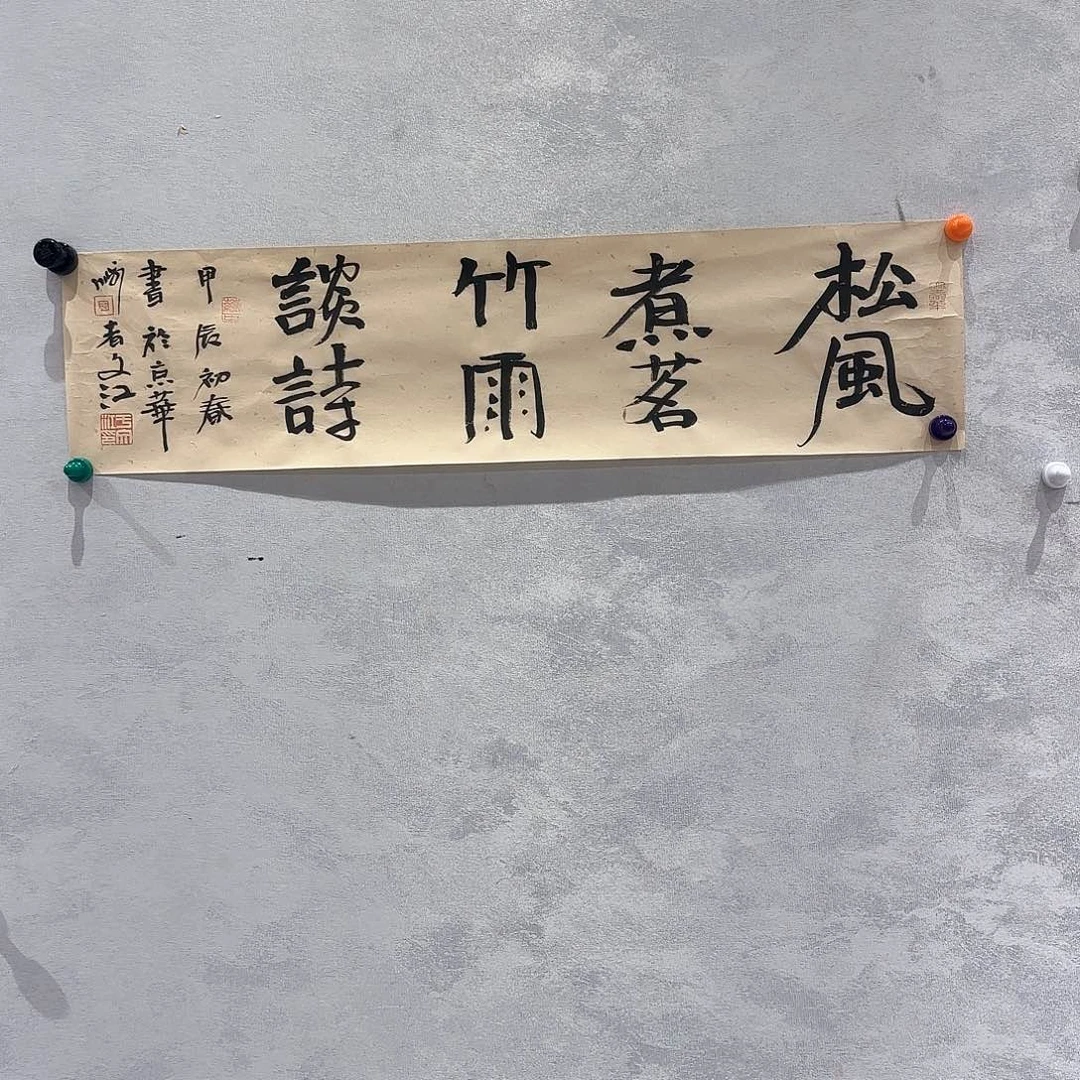 松風
煮茗
竹雨
談詩
甲辰初春
書於京華
文江